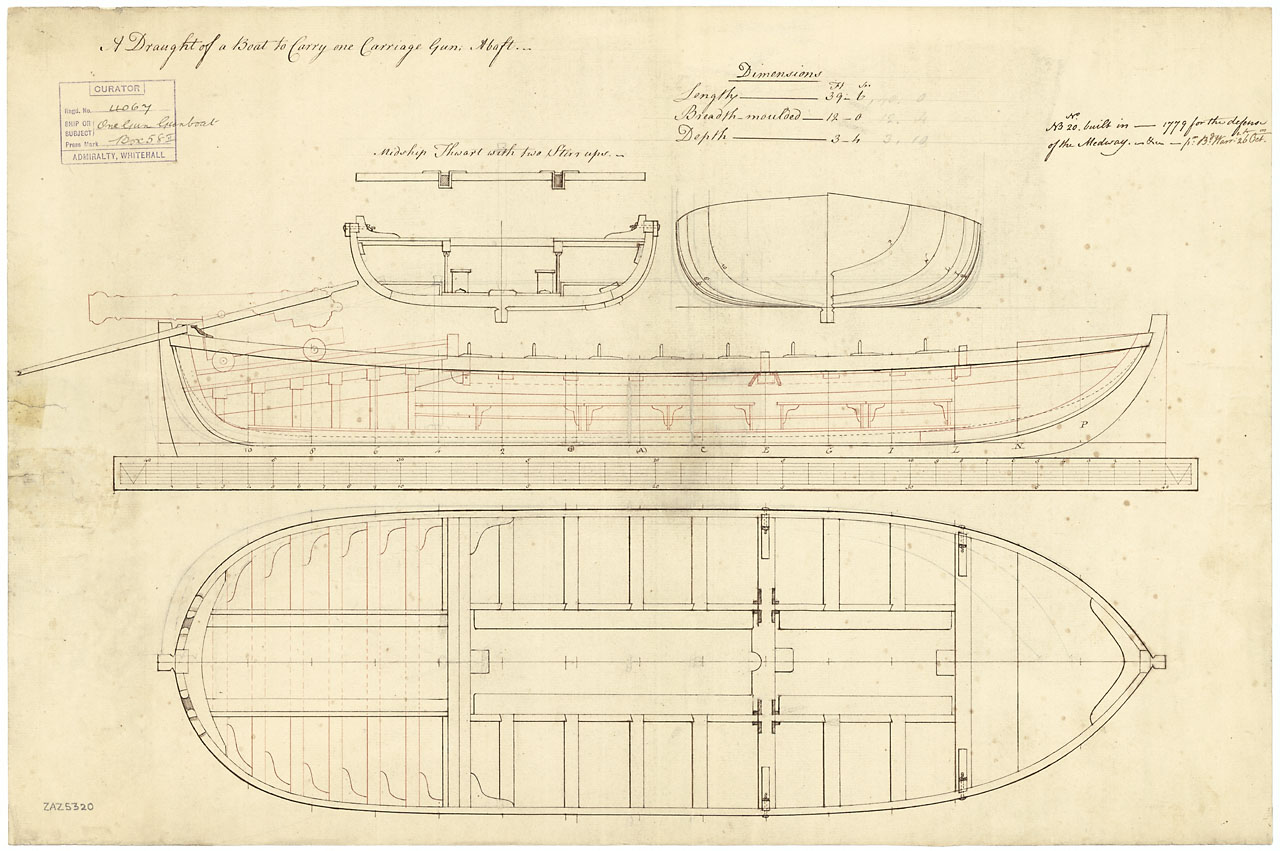 A Draught of a Boat to Carry one Carriage Gun, Abaft.
CURATOR
Regd. No. 4067
SHIP OR SUBJECT: One Gun Gunboat
Press Mark Box 58
ADMIRALTY, WHITEHALL
Midship Thwart with two Stirrups.
Dimensions
Ft In
Length 39 - 6
Breadth - moulded 12 - 0
Depth 3 - 4
No
NB 20. built in 1779 for the defence
of the Medway. pr. Bd. Warrt. 26 Octr.
10 8 6 4 2 (A) C E G I L N P
ZAZ5320